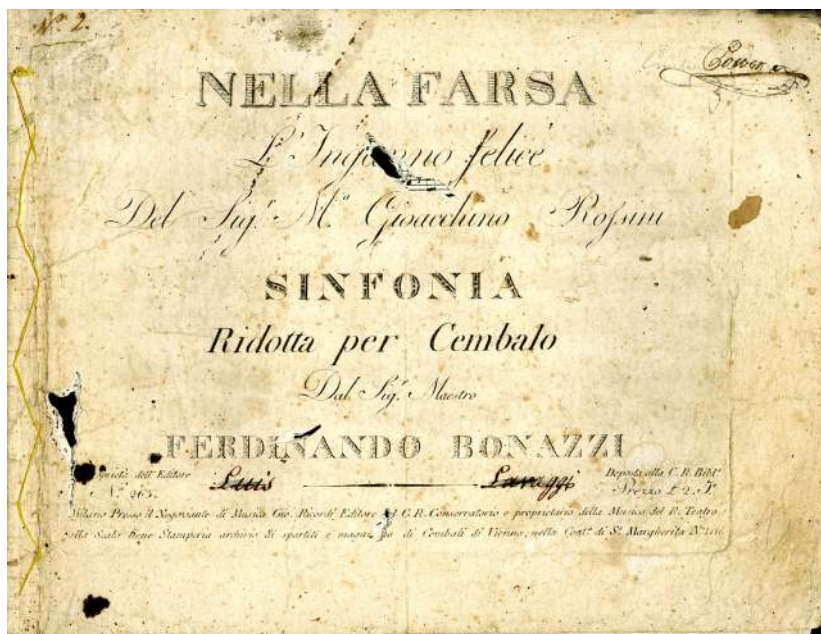 Nº 2.
NELLA FARSA
L'Inganno felice
Del Sig.r M.o Gioacchino Rossini
SINFONIA
Ridotta per Cembalo
Dal Sig.r Maestro
FERDINANDO BONAZZI
Proprietà dell'Editore
Deposta alla C. R. Bibl.a
N.o 263.
Luis Lavaggi
Prezzo £ 2.
Milano Presso il Negoziante di Musica Gio. Ricordi Editore del C.R. Conservatorio e proprietario della Musica del R. Teatro
alla Scala tiene Stamperia archivio di spartiti e magazzino di Cembali di Vienna, nella Cont.a di S.a Margherita N.o